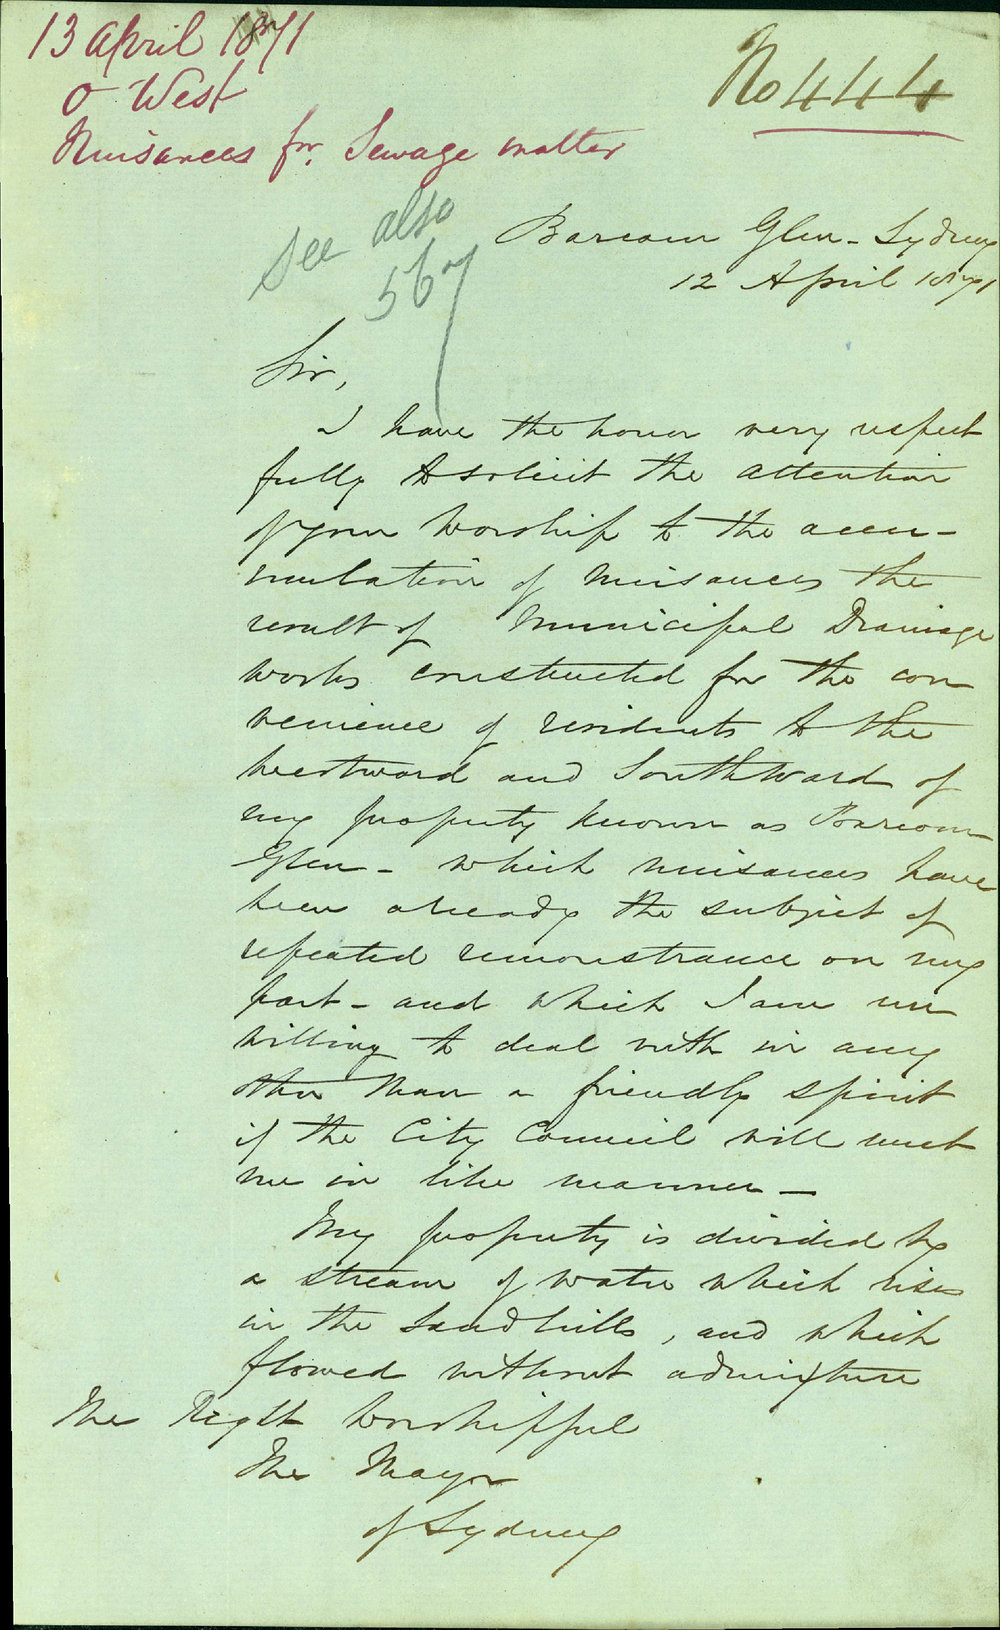 13 April 1871
O West
Nuisances fm. Sewage matter
No 444
see also
567
Barcom Glen - Sydney
12 April 1871
Sir,
I have the honor very respect
fully to solicit the attention
of your Worship to the accu-
mulation of nuisances the
result of Municipal Drainage
works constructed for the con
venience of residents to the
westward and Southward of
my property known as Barcom
Glen - which nuisances have
been already the subject of
repeated remonstrance on my
part - and which I am un
willing to deal with in any
other than a friendly spirit
if the City Council will meet
me in like manner -
My property is divided by
a stream of water which rises
in the Sandhills, and which
flowed without admixture
The Right Worshipful
The Mayor
of Sydney